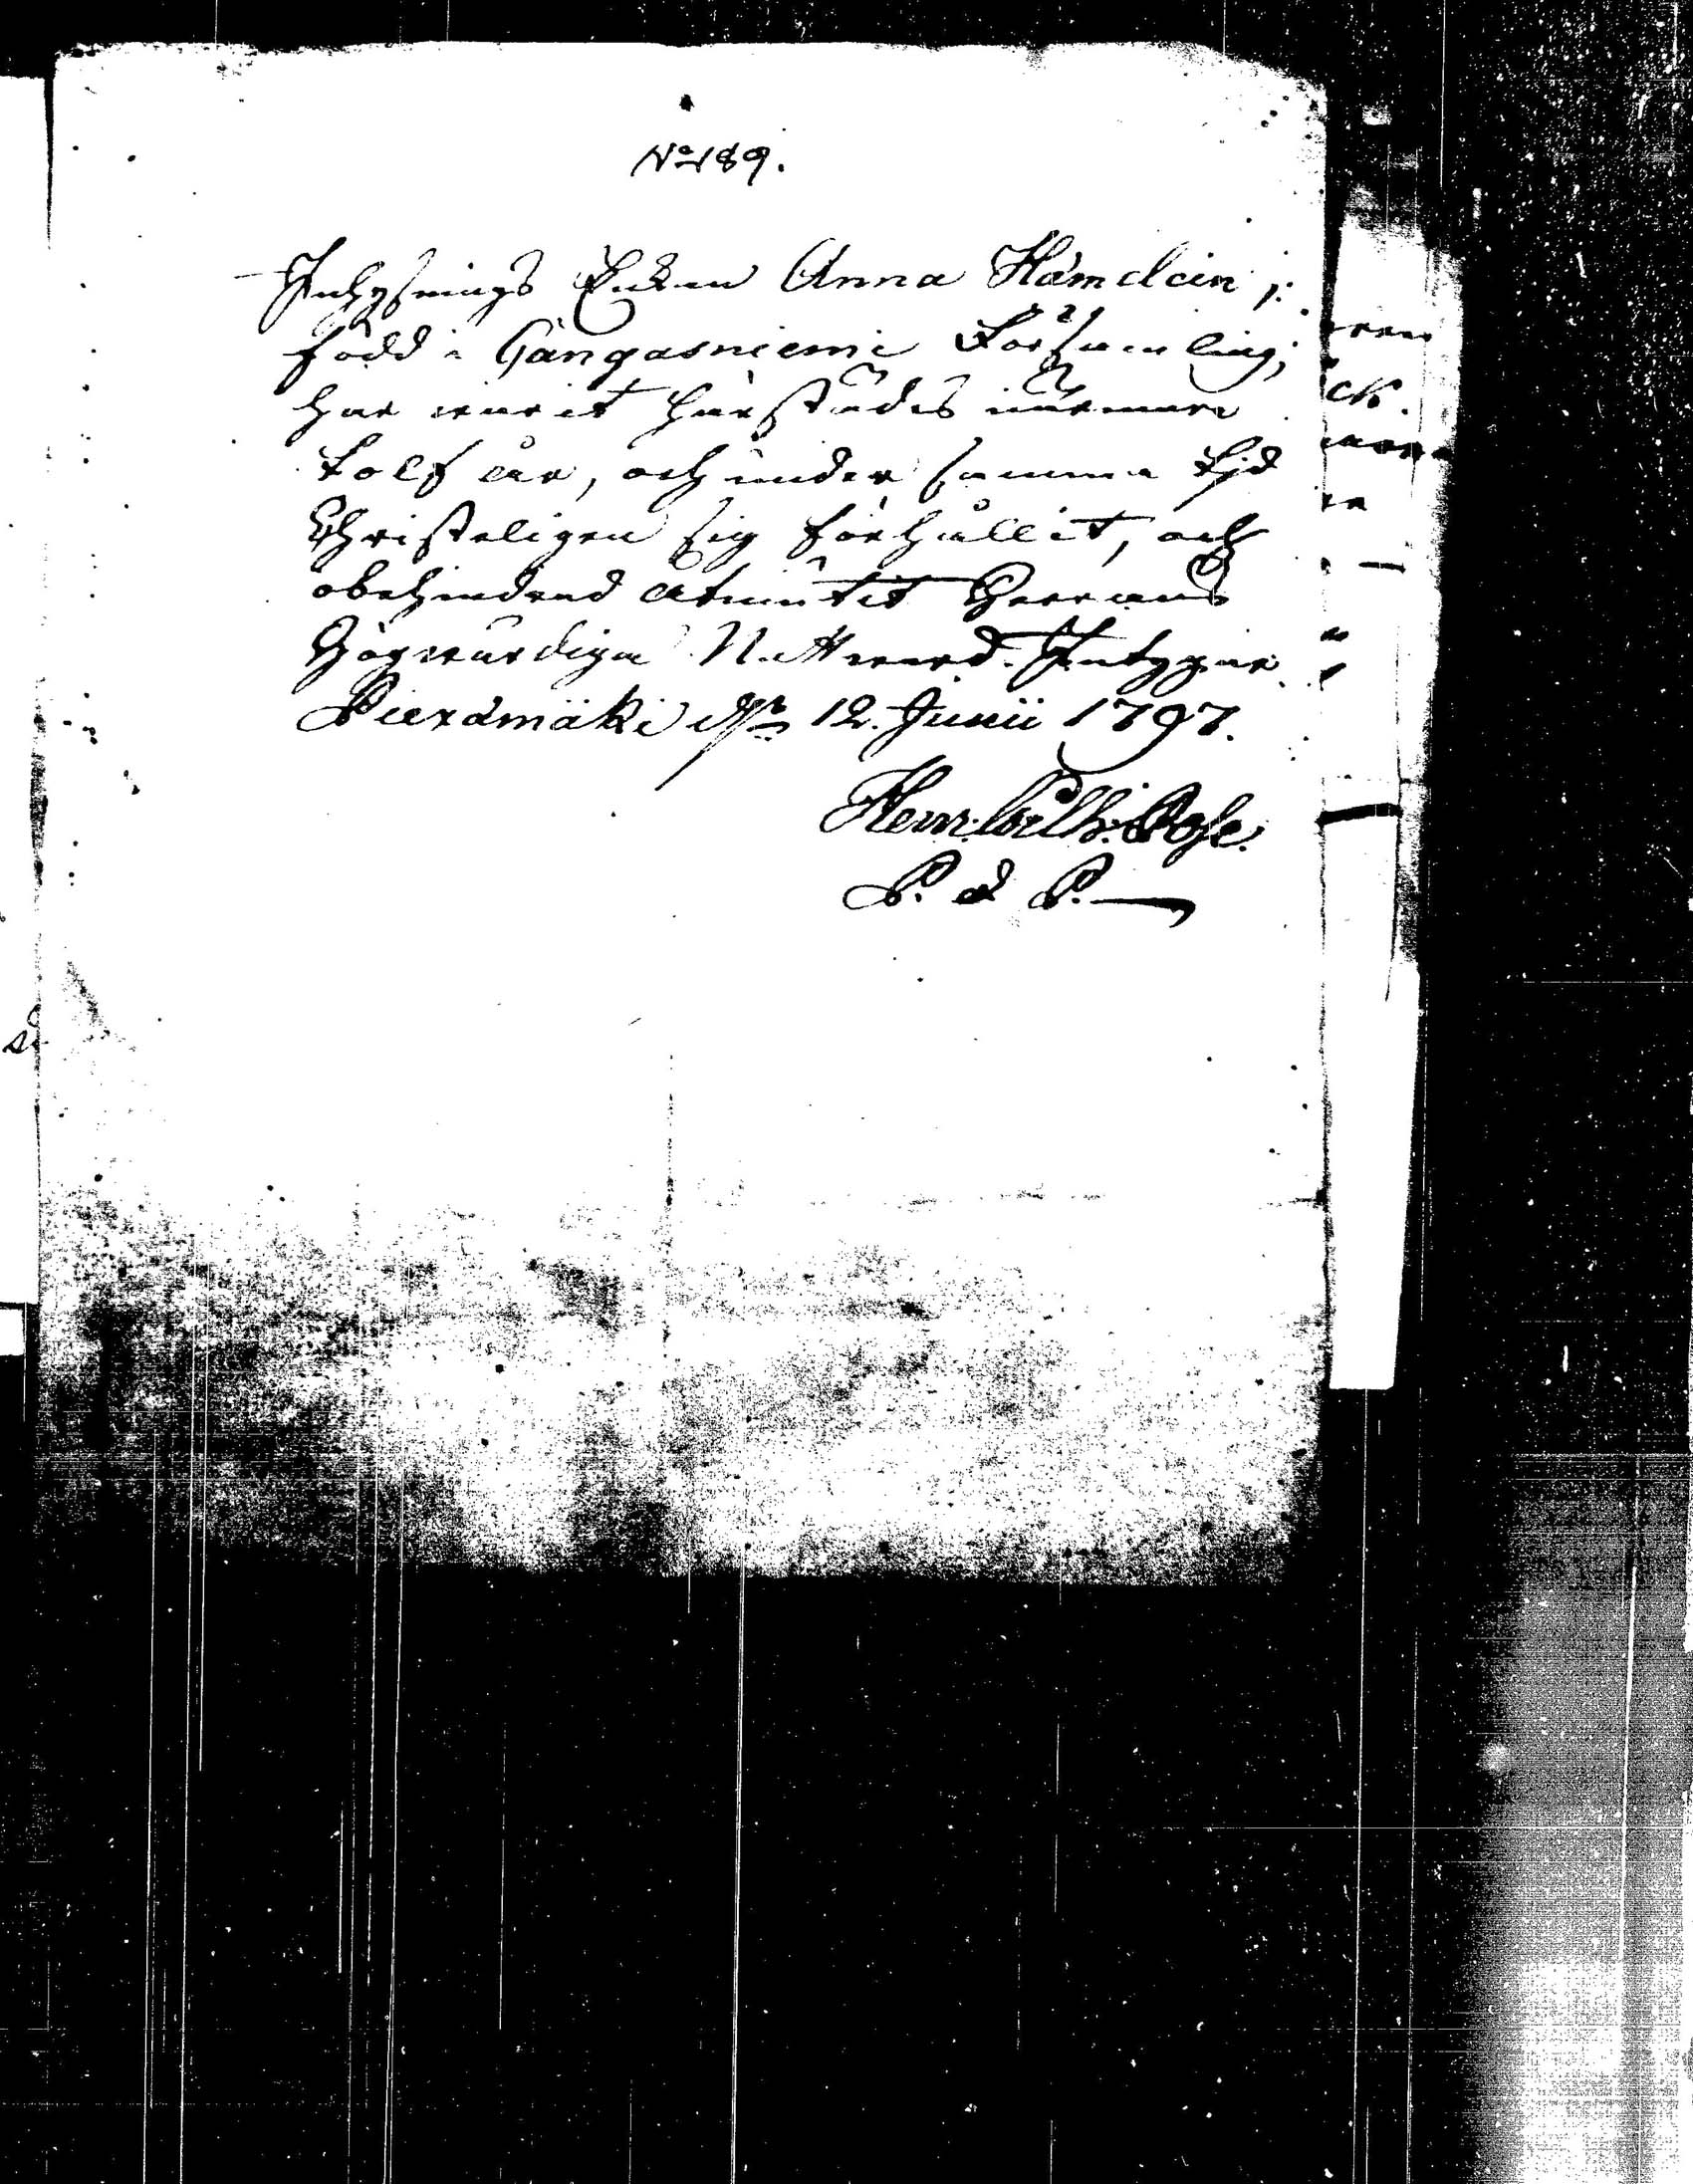 No 189.
Inhysnings Enkan Anna Hämelein,
född i Gangasniemi Församling,
har warit härstädes närmare
tolf år, och under samma tjd
Christeligen sig förhållit, och
obehindrad åtniutit Herrans
Högwärdiga Nattward. Intygar
Piexämäki d. 12. Junii 1797.
Henr. Wilh. Pose.
P. &amp; P.